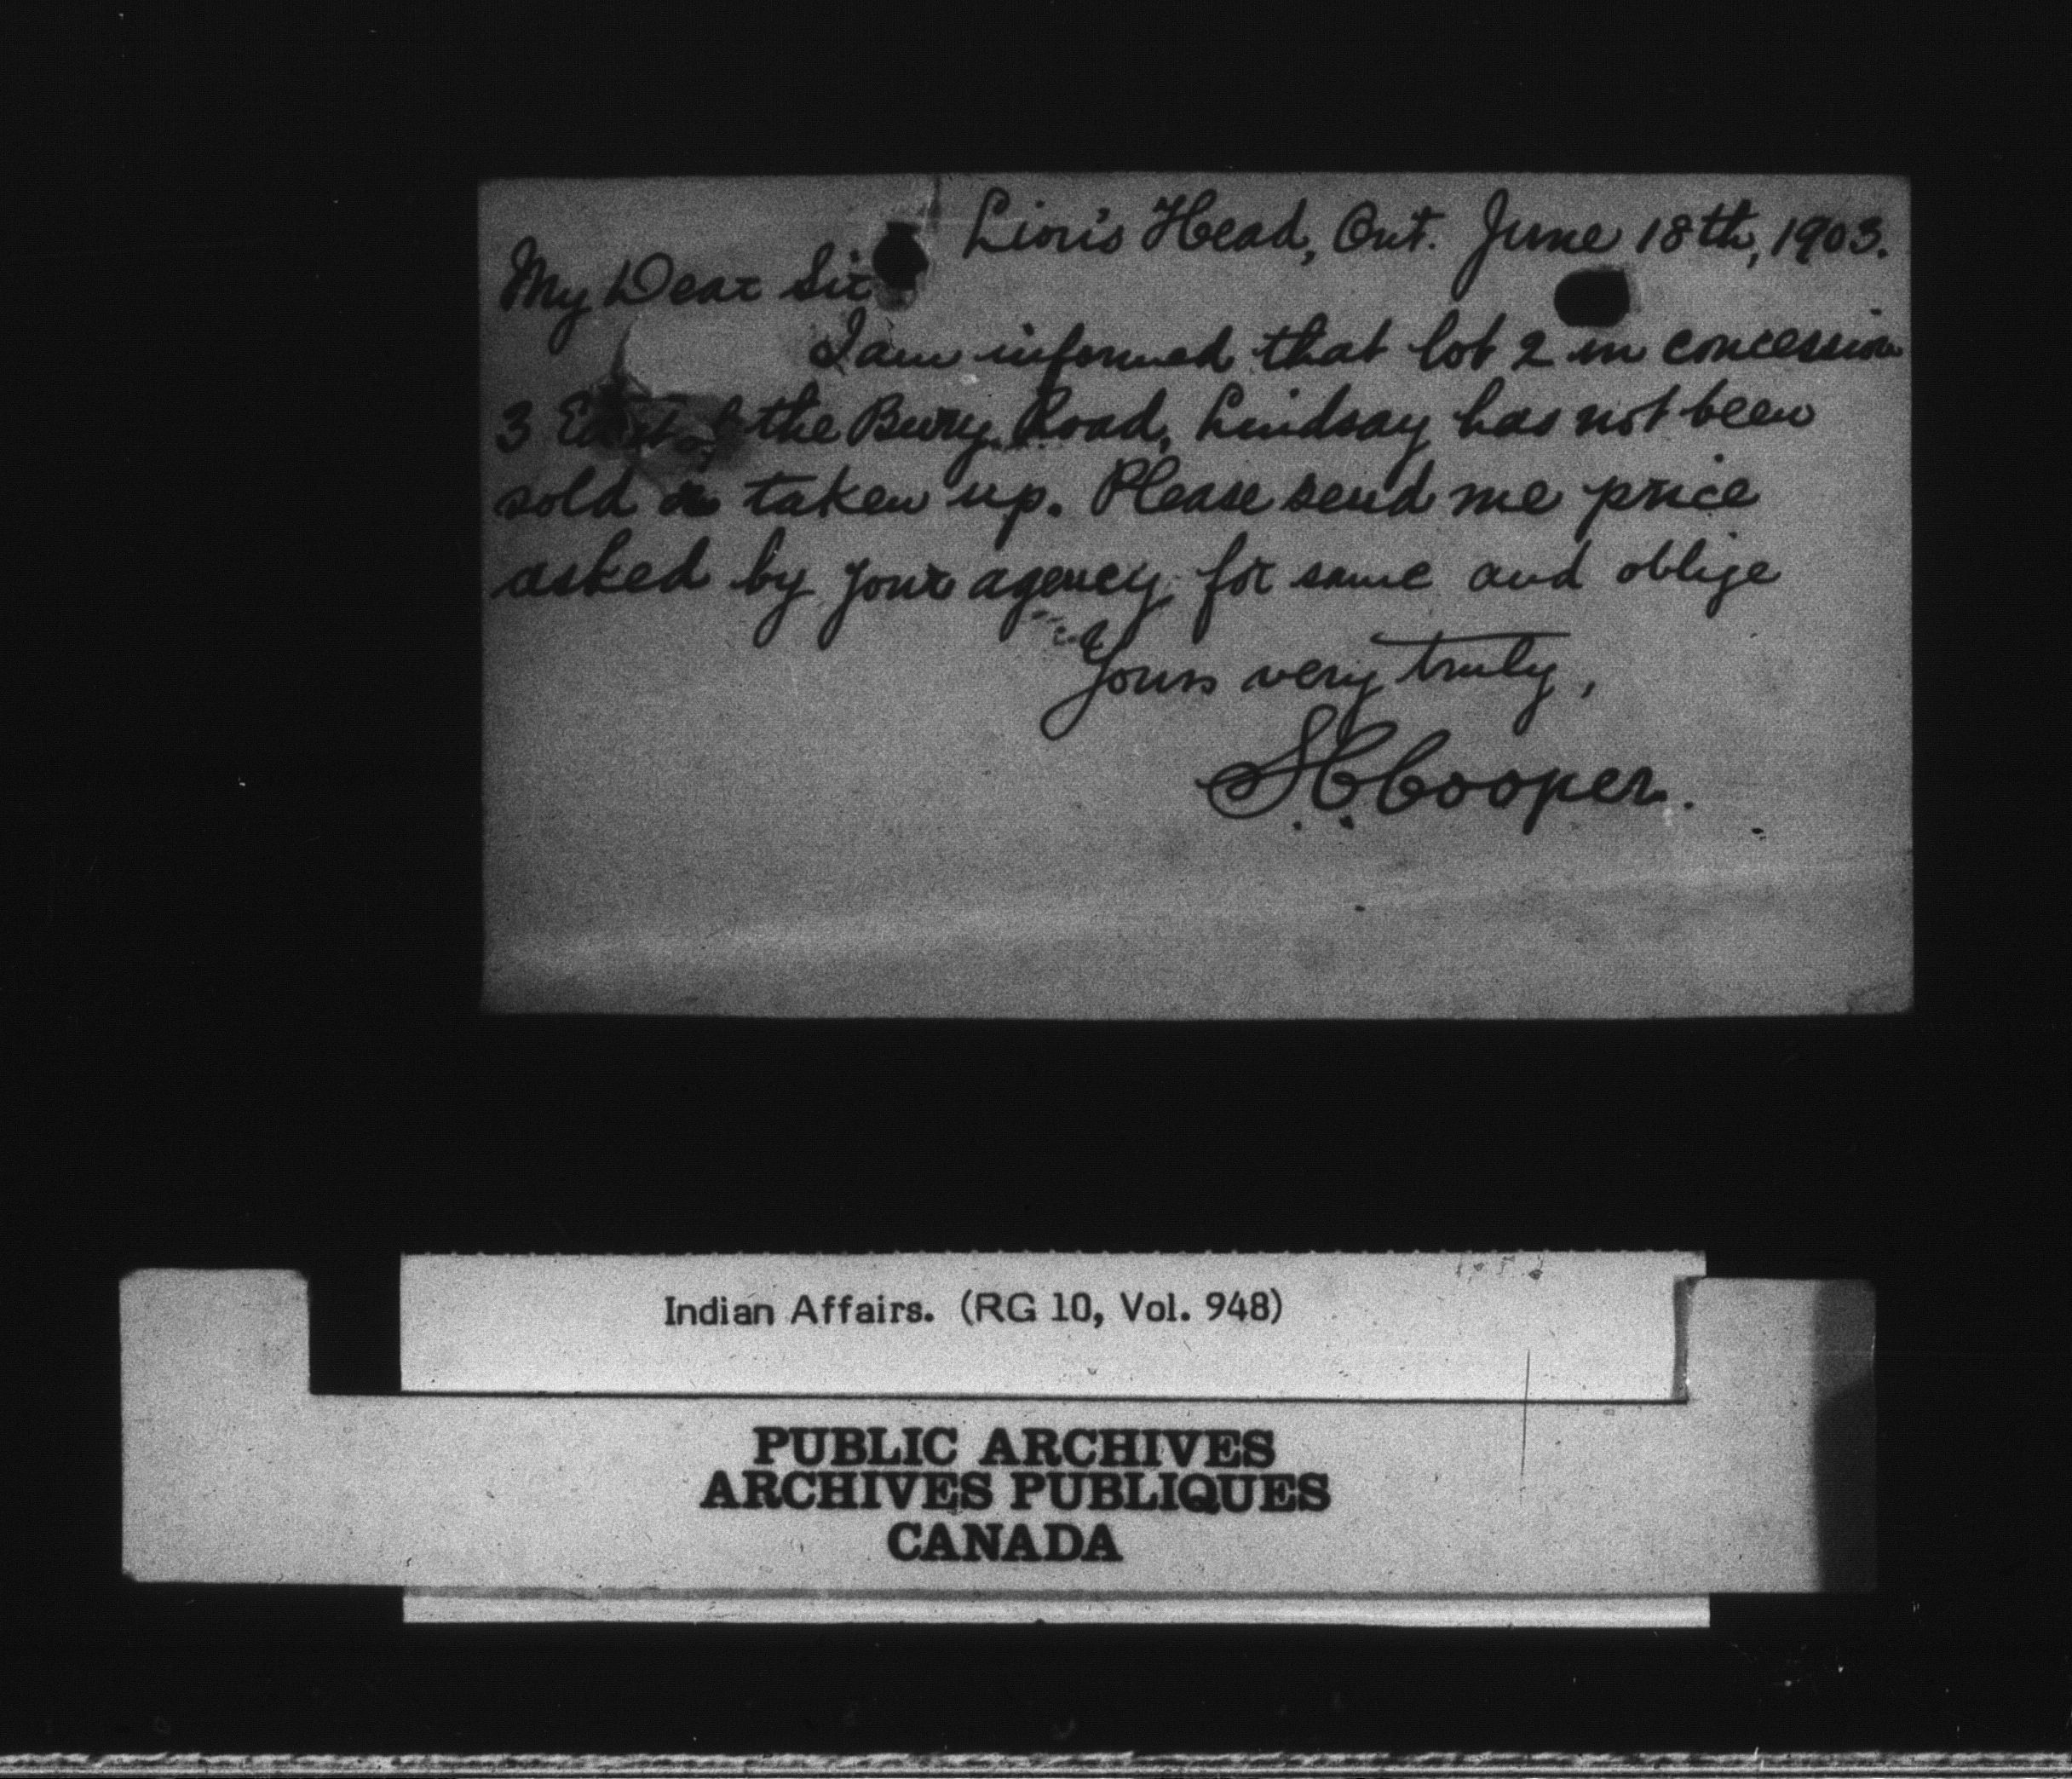 Lion's Head, Ont. June 18th, 1903.
My Dear Sir
I am informed that lot 2 in concession
3 East of the Bury Road, Lindsay has not been
sold or taken up. Please send me price
asked by your agency for same and oblige
Yours very truly,
S.C. Cooper.
Indian Affairs. (RG 10, Vol. 948)
PUBLIC ARCHIVES
ARCHIVES PUBLIQUES
CANADA